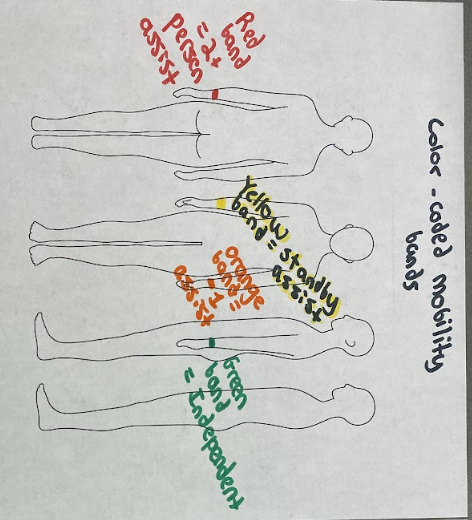 Color-coded mobility
bands
Red
band
= 2+
person
assist
Yellow
band = standby
assist
Orange
band =
1
assist
Green
band
= Independent